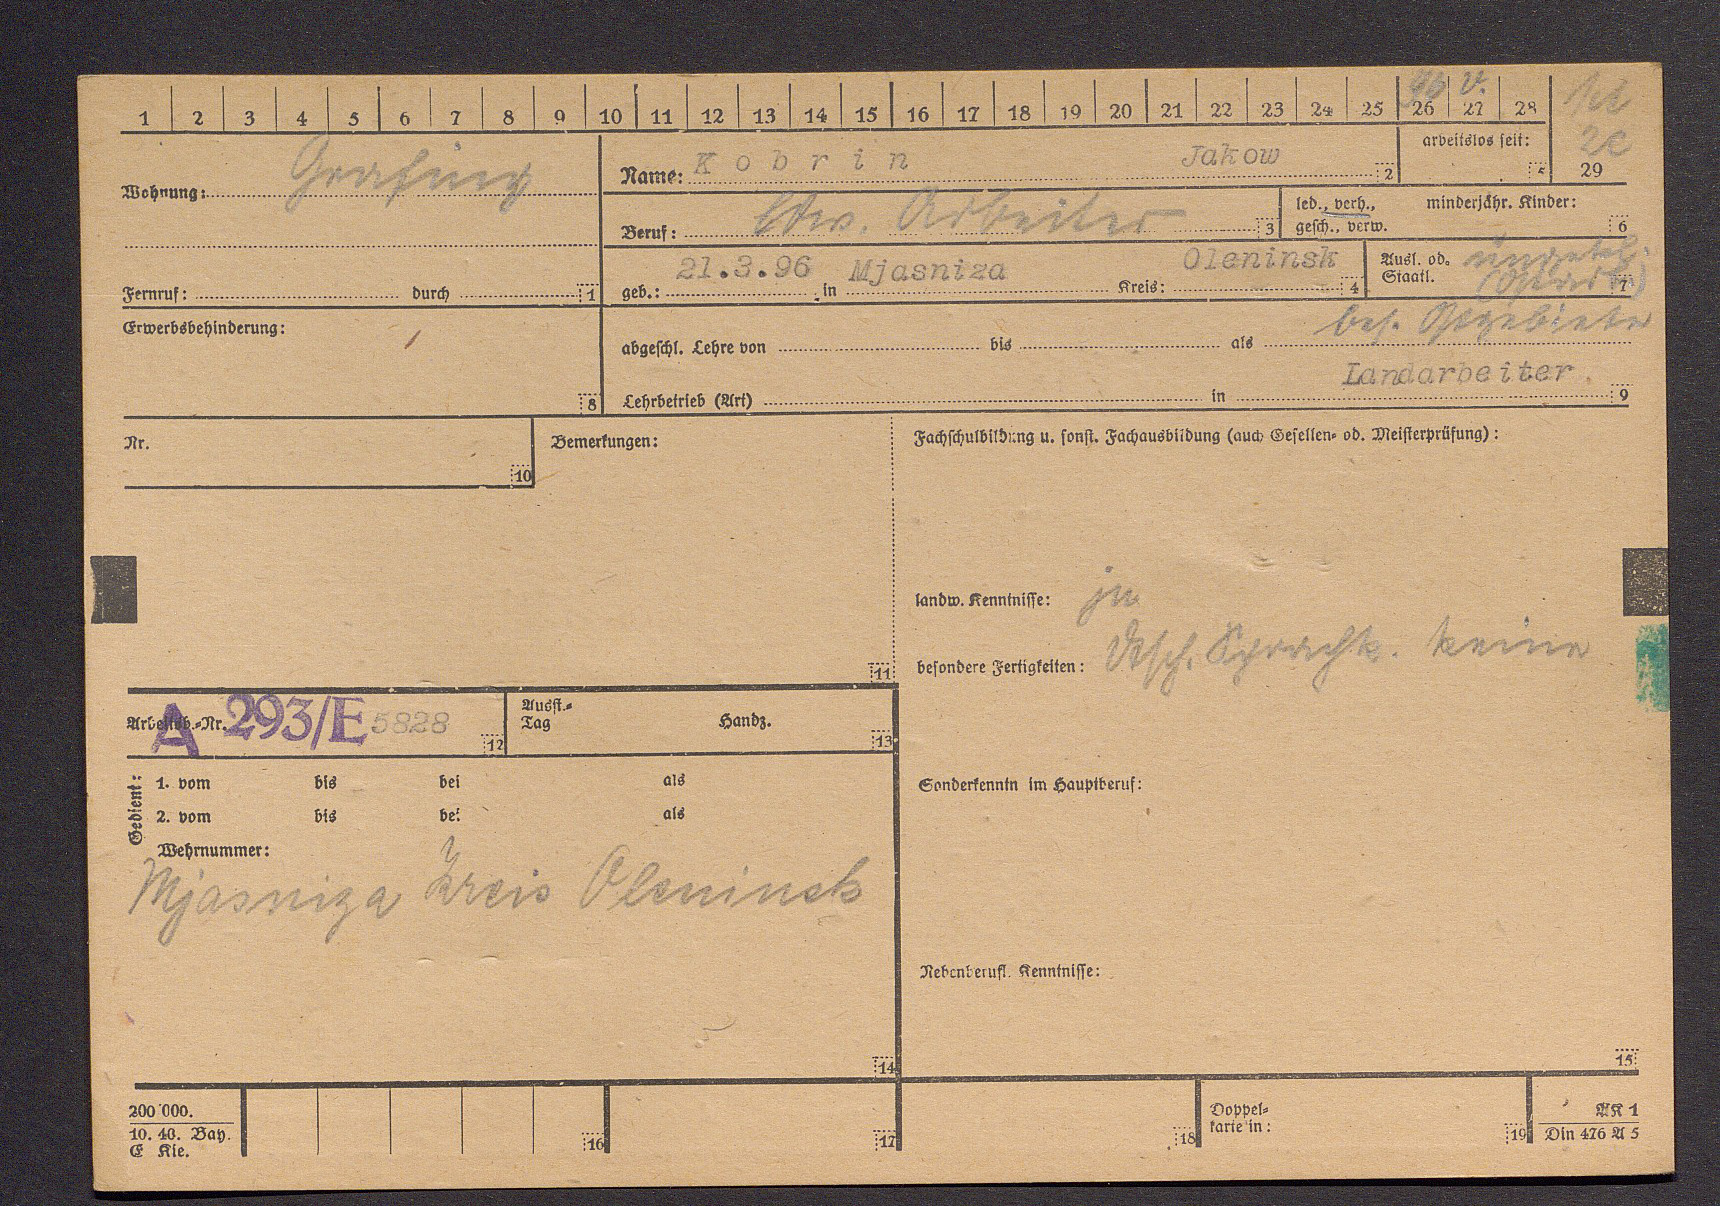 1 2 3 4 5 6 7 8 9 10 11 12 13 14 15 16 17 18 19 20 21 22 23 24 25 26 27 28 29
Wohnung: Grafing
Fernruf: durch 1
Name: Kobrin Jakow 2
arbeitslos seit: 5
2c
Beruf: ldw. Arbeiter 3
led., verh., gesch., verw.
minderjähr. Kinder: 6
geb.: 21.3.96 in Mjasniza Kreis: Oleninsk 4
Ausl. od. Staatl. 7
Erwerbsbehinderung: 8
bes. Ostgebiete
abgeschl. Lehre von bis als
Landarbeiter.
Lehrbetrieb (Art) in 9
Nr. 10
Bemerkungen: 11
Fachschulbildung u. sonst. Fachausbildung (auch Gesellen- od. Meisterprüfung):
landw. Kenntnisse: ja
besondere Fertigkeiten: Dtsch. Sprachk. keine
Arbeitsb.-Nr. A 293/E 5828 12
Ausst.-Tag Handz. 13
Gedient:
1. vom bis bei als
2. vom bis bei als
Wehrnummer:
Mjasniza Kreis Oleninsk
14
Sonderkenntn im Hauptberuf:
Nebenberufl. Kenntnisse:
15
200 000.
10. 40. Bay.
E Kie.
16
17
18
Doppelkarte in: 19
AK 1
Din 476 A 5